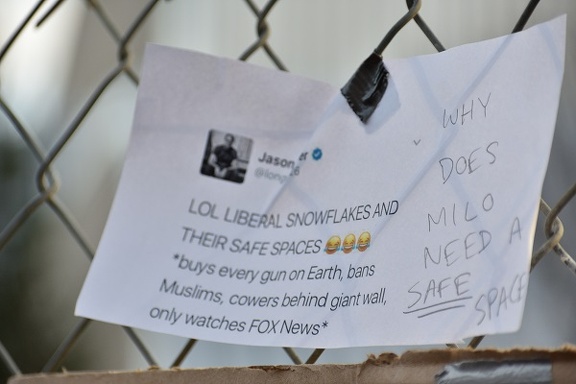 Jason
LOL LIBERAL SNOWFLAKES AND
THEIR SAFE SPACES 😂😂😂
*buys every gun on Earth, bans
Muslims, cowers behind giant wall,
only watches FOX News*
WHY
DOES
MILO
NEED A
SAFE
SPACE